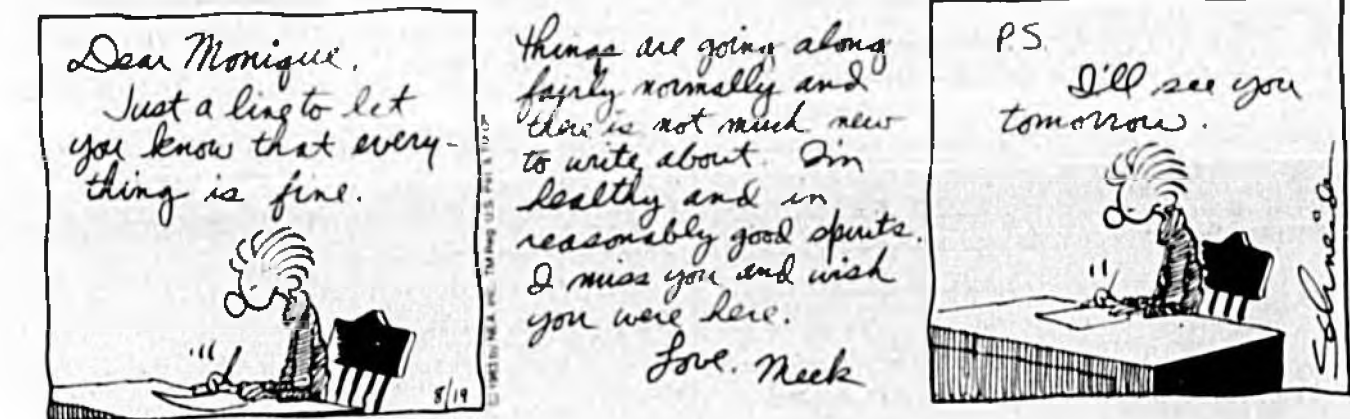 Dear Monique,
Just a line to let
you know that every-
thing is fine.
8/19
© 1983 by NEA, Inc. TM Reg. U.S. Pat. & TM Off.
things are going along
fairly normally and
there is not much new
to write about. I'm
healthy and in
reasonably good spirits.
I miss you and wish
you were here.
Love, Meek
P.S.
I'll see you
tomorrow.
Schneider